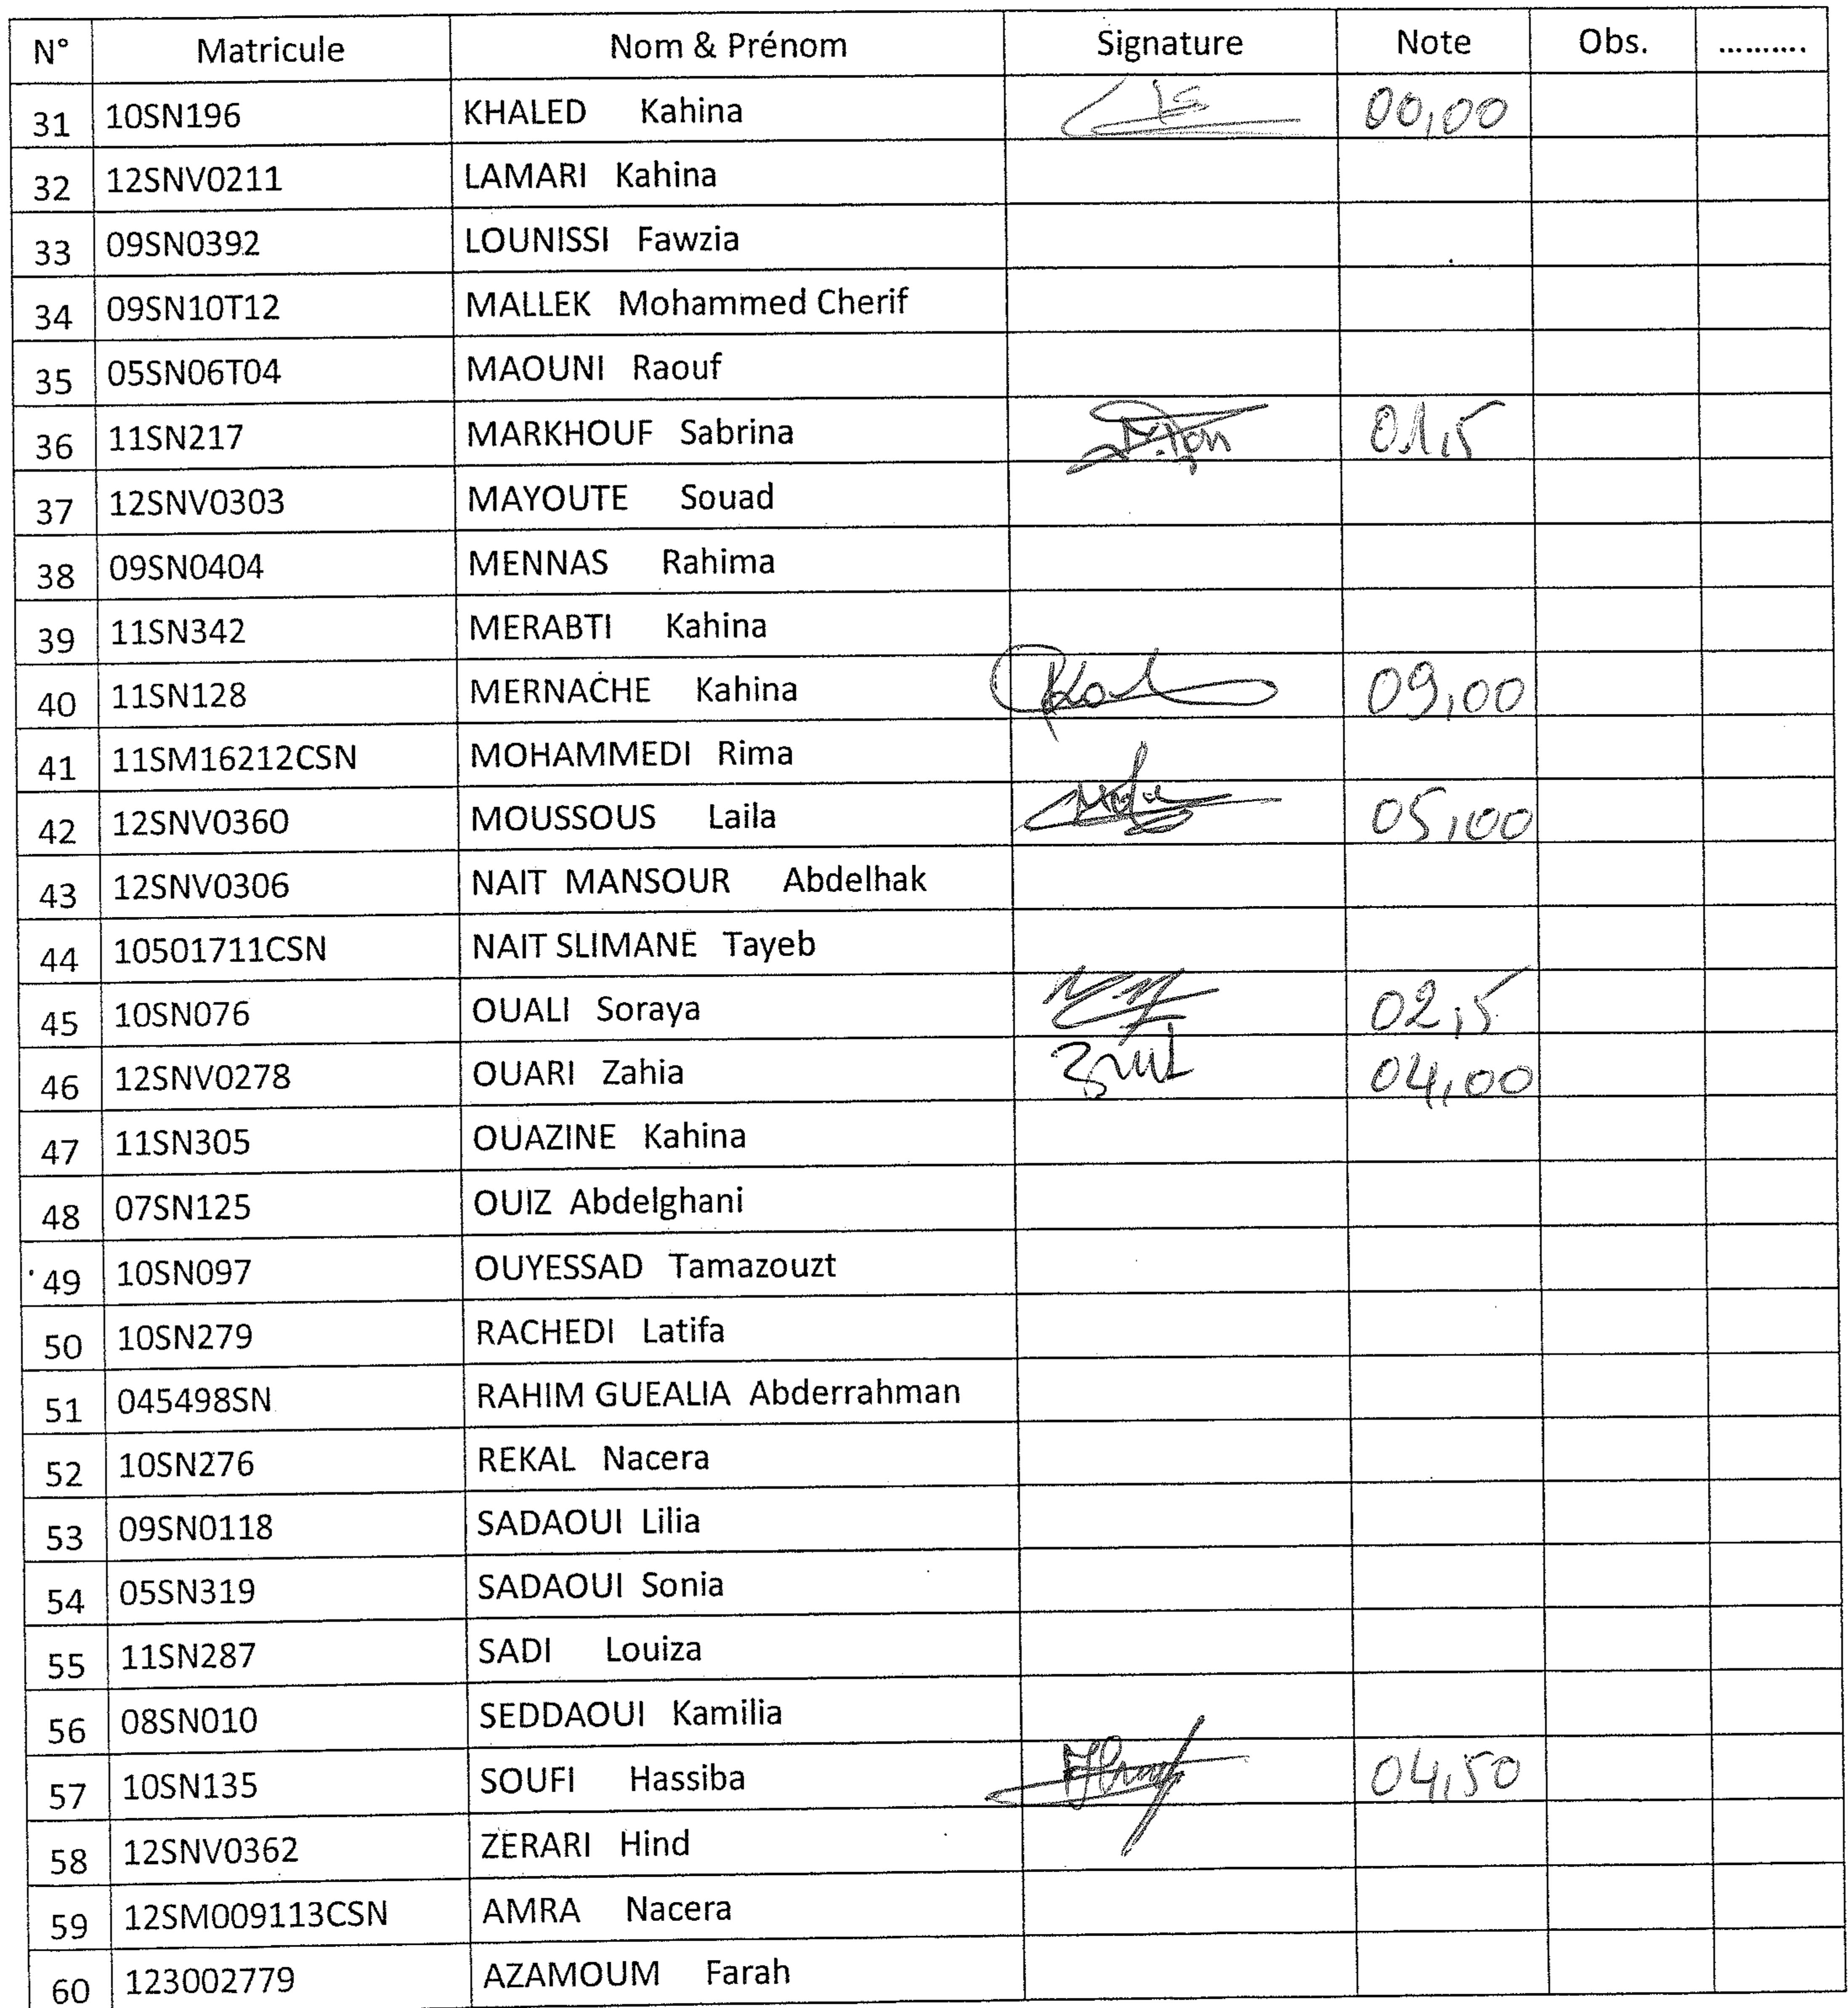 N° Matricule Nom & Prénom Signature Note Obs. ..........
31 10SN196 KHALED Kahina 00,00
32 12SNV0211 LAMARI Kahina
33 09SN0392 LOUNISSI Fawzia
34 09SN10T12 MALLEK Mohammed Cherif
35 05SN06T04 MAOUNI Raouf
36 11SN217 MARKHOUF Sabrina 01,5
37 12SNV0303 MAYOUTE Souad
38 09SN0404 MENNAS Rahima
39 11SN342 MERABTI Kahina
40 11SN128 MERNACHE Kahina 09,00
41 11SM16212CSN MOHAMMEDI Rima
42 12SNV0360 MOUSSOUS Laila 05,00
43 12SNV0306 NAIT MANSOUR Abdelhak
44 10501711CSN NAIT SLIMANE Tayeb
45 10SN076 OUALI Soraya 02,5
46 12SNV0278 OUARI Zahia 04,00
47 11SN305 OUAZINE Kahina
48 07SN125 OUIZ Abdelghani
49 10SN097 OUYESSAD Tamazouzt
50 10SN279 RACHEDI Latifa
51 045498SN RAHIM GUEALIA Abderrahman
52 10SN276 REKAL Nacera
53 09SN0118 SADAOUI Lilia
54 05SN319 SADAOUI Sonia
55 11SN287 SADI Louiza
56 08SN010 SEDDAOUI Kamilia
57 10SN135 SOUFI Hassiba 04,50
58 12SNV0362 ZERARI Hind
59 12SM009113CSN AMRA Nacera
60 123002779 AZAMOUM Farah